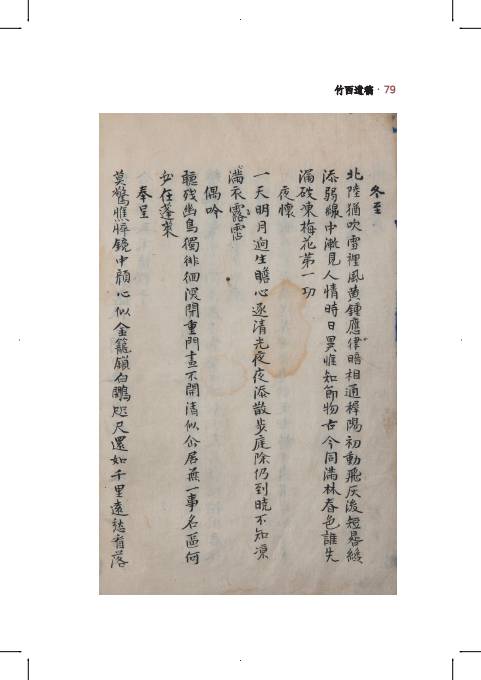 竹西遺稿 · 79
冬至
北陸猶吹雪裡風黃鍾應律暗相通穉陽初動飛灰後短晷纔
添弱線中漸見人情時日異惟知節物古今同滿林春色誰先
漏破凍梅花第一功
夜懷
一天明月逈生瞻心逐清光夜夜添散步庭除仍到曉不知凉
滿衣露
偶吟
聽殘幽鳥獨徘徊深閉重門晝不開清似仙居無一事名區何
必在蓬萊
奉呈
莫驚憔悴鏡中顏心似金籠嶺白鷳咫尺還如千里遠愁看落